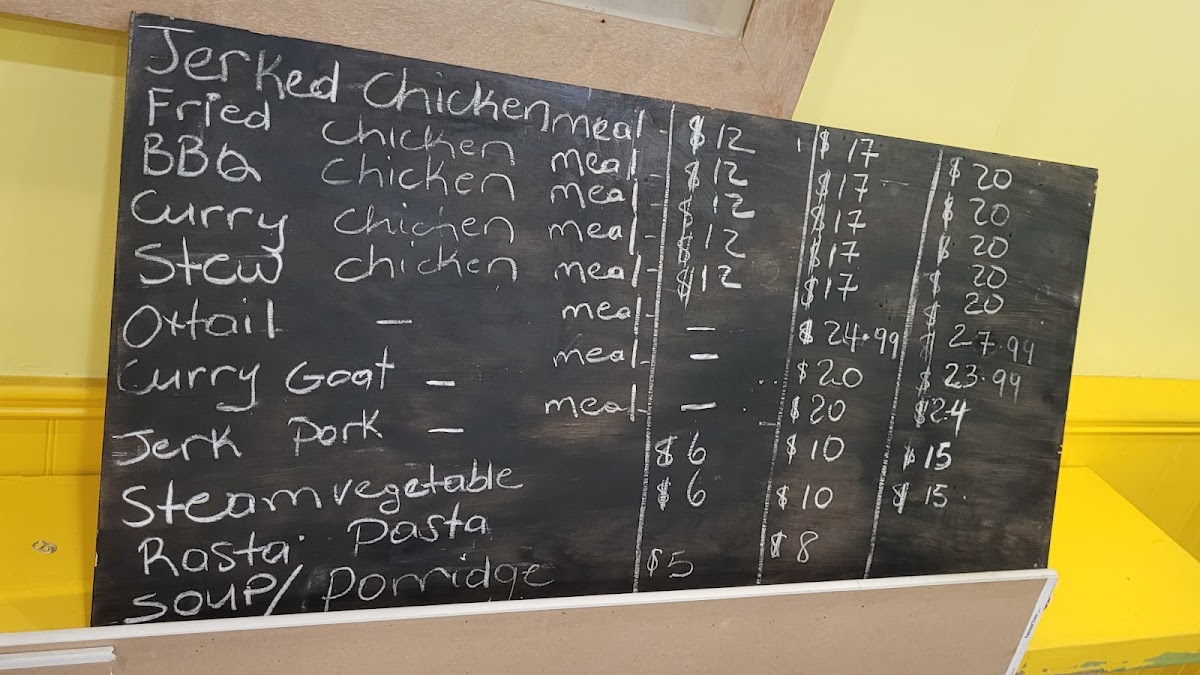 Jerked Chicken meal - $12 $17 $20
Fried chicken meal - $12 $17 $20
BBQ chicken meal - $12 $17 $20
Curry chicken meal - $12 $17 $20
Stew chicken meal - $12 $17 $20
Oxtail - meal - $24.99 $27.99
Curry Goat - meal - - $20 $23.99
Jerk Pork - meal - - $20 $24
Steam vegetable $6 $10 $15
Rasta Pasta $6 $10 $15
Soup/Porridge $5 $8